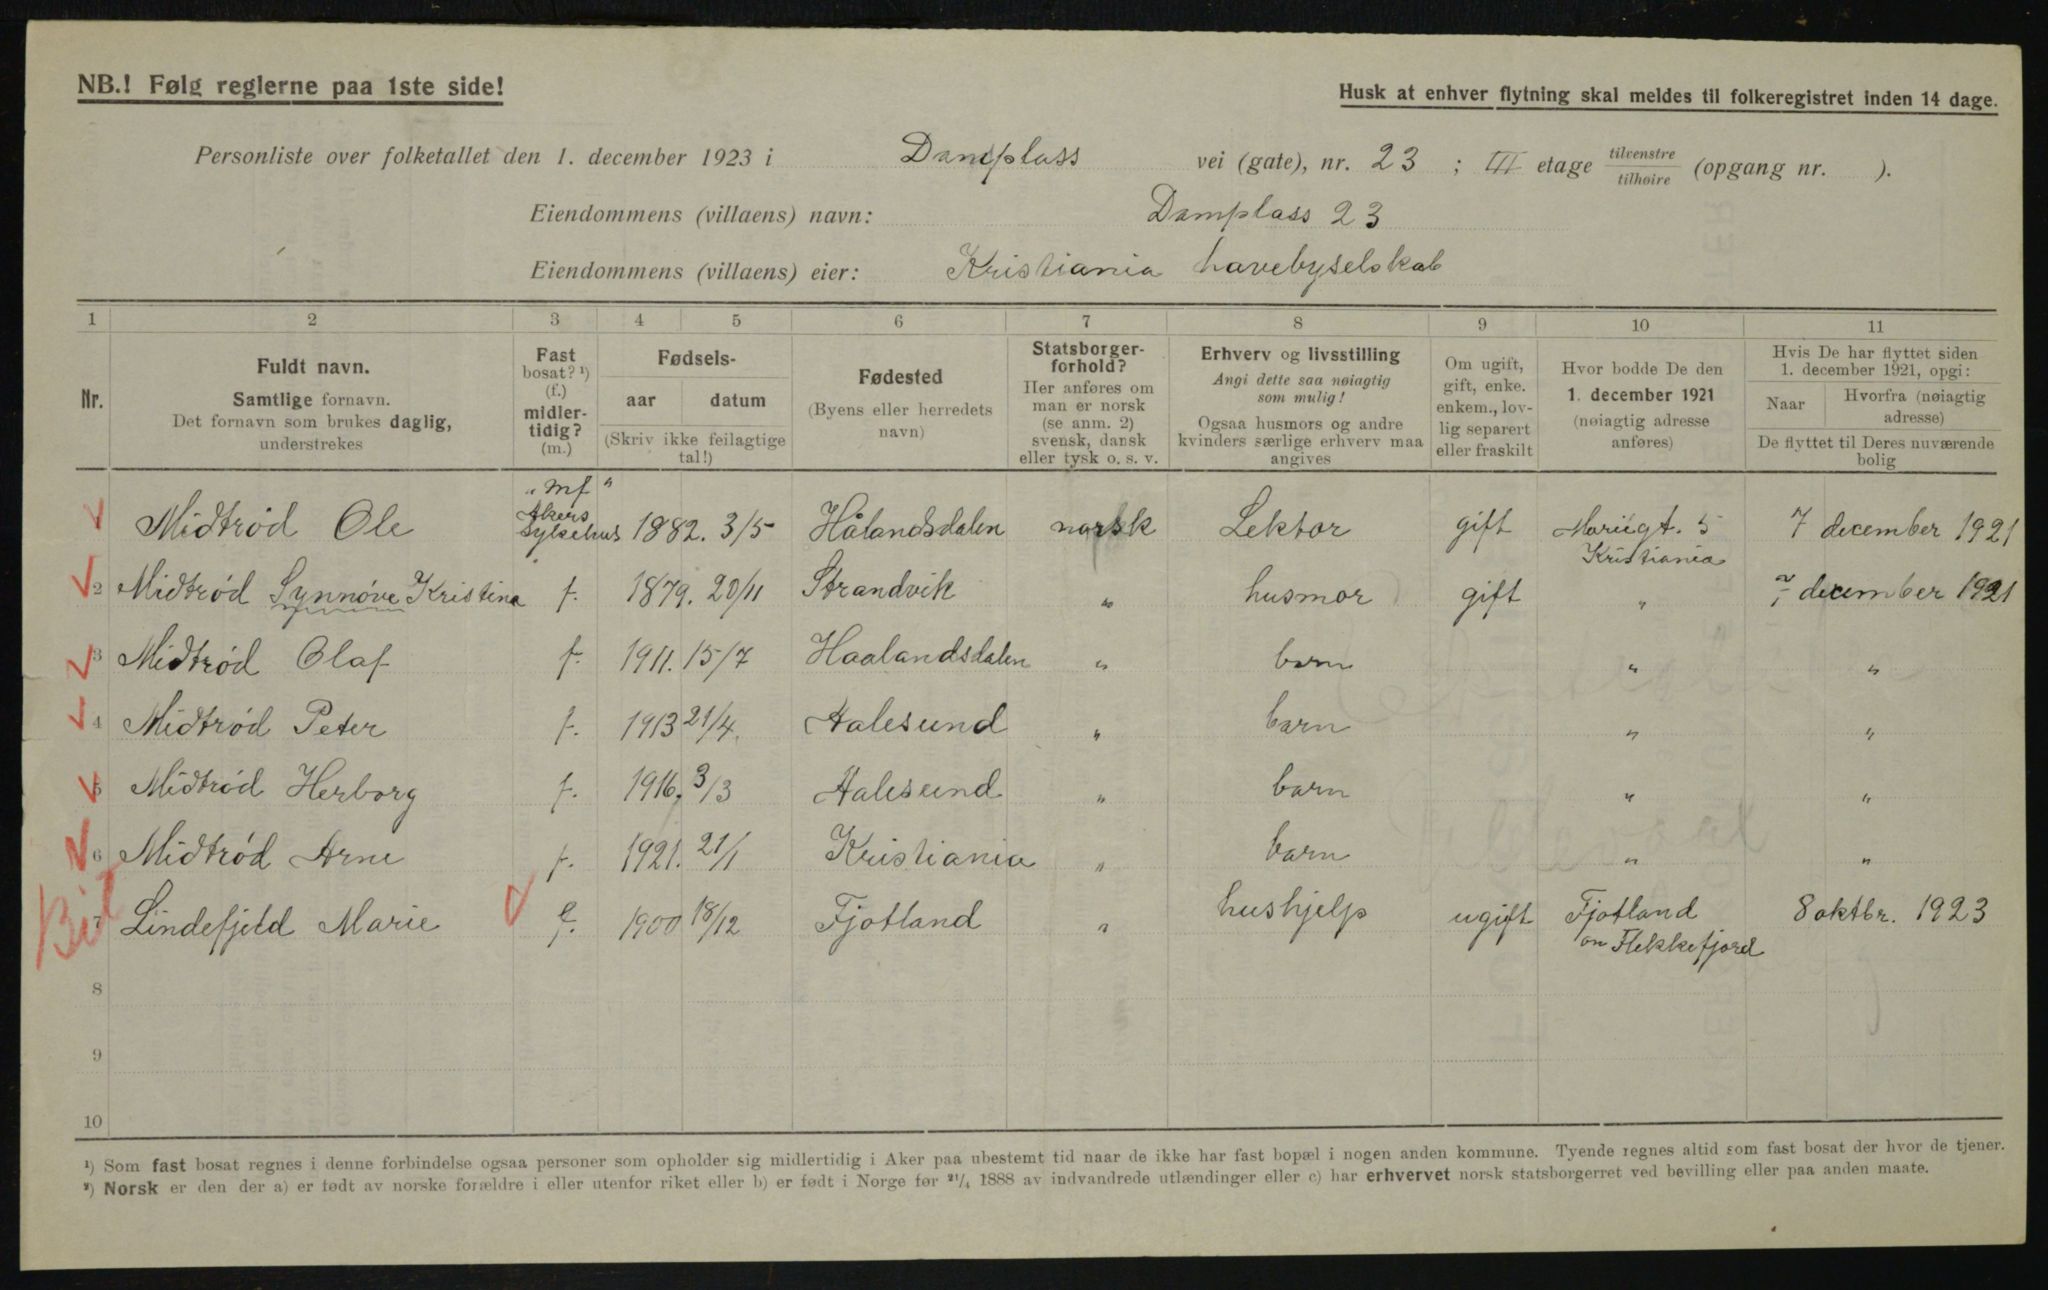 NB.! Følg reglerne paa 1ste side!
Husk at enhver flytning skal meldes til folkeregistret inden 14 dage.
Personliste over folketallet den 1. december 1923 i Damplass vei (gate), nr. 23 ; III etage tilvenstre/tilhøire (opgang nr. ).
Eiendommens (villaens) navn: Damplass 23
Eiendommens (villaens) eier: Kristiania havebyselskab
1 2 3 4 5 6 7 8 9 10 11
Nr.
Fuldt navn.
Samtlige fornavn.
Det fornavn som brukes daglig,
understrekes
Fast
bosat? ¹)
(f.)
midler-
tidig?
(m.)
Fødsels-
aar datum
(Skriv ikke feilagtige
tal!)
Fødested
(Byens eller herredets
navn)
Statsborger-
forhold?
Her anføres om
man er norsk
(se anm. 2)
svensk, dansk
eller tysk o. s. v.
Erhverv og livsstilling
Angi dette saa nøiagtig
som mulig!
Ogsaa husmors og andre
kvinders særlige erhverv maa
angives
Om ugift,
gift, enke.
enkem., lov-
lig separert
eller fraskilt
Hvor bodde De den
1. december 1921
(nøiagtig adresse
anføres)
Hvis De har flyttet siden
1. december 1921, opgi:
Naar Hvorfra (nøiagtig
adresse)
De flyttet til Deres nuværende
bolig
Midtrød Ole "mf" Akers Sykehus 1882. 3/5 Hålandsdalen norsk Lektor gift Mariigt. 5 Kristiania 7 december 1921
2 Midtrød Synnøve Kristina f. 1879. 20/11 Strandvik " husmor gift " 7 december 1921
3 Midtrød Olaf f. 1911. 15/7 Haalandsdalen " barn " "
4 Midtrød Peter f. 1913 21/4. Aalesund " barn " "
5 Midtrød Herborg f. 1916. 3/3 Aalesund " barn " "
6 Midtrød Arne f. 1921. 21/1 Kristiania " barn " "
7 Lindefjeld Marie f. 1900 18/12 Fjotland " hushjelp ugift Fjotland on Flekkefjord 8 oktbr. 1923
8
9
10
¹) Som fast bosat regnes i denne forbindelse ogsaa personer som opholder sig midlertidig i Aker paa ubestemt tid naar de ikke har fast bopæl i nogen anden kommune. Tyende regnes altid som fast bosat der hvor de tjener.
²) Norsk er den der a) er født av norske forældre i eller utenfor riket eller b) er født i Norge før ²¹/₄ 1888 av indvandrede utlændinger eller c) har erhvervet norsk statsborgerret ved bevilling eller paa anden maate.